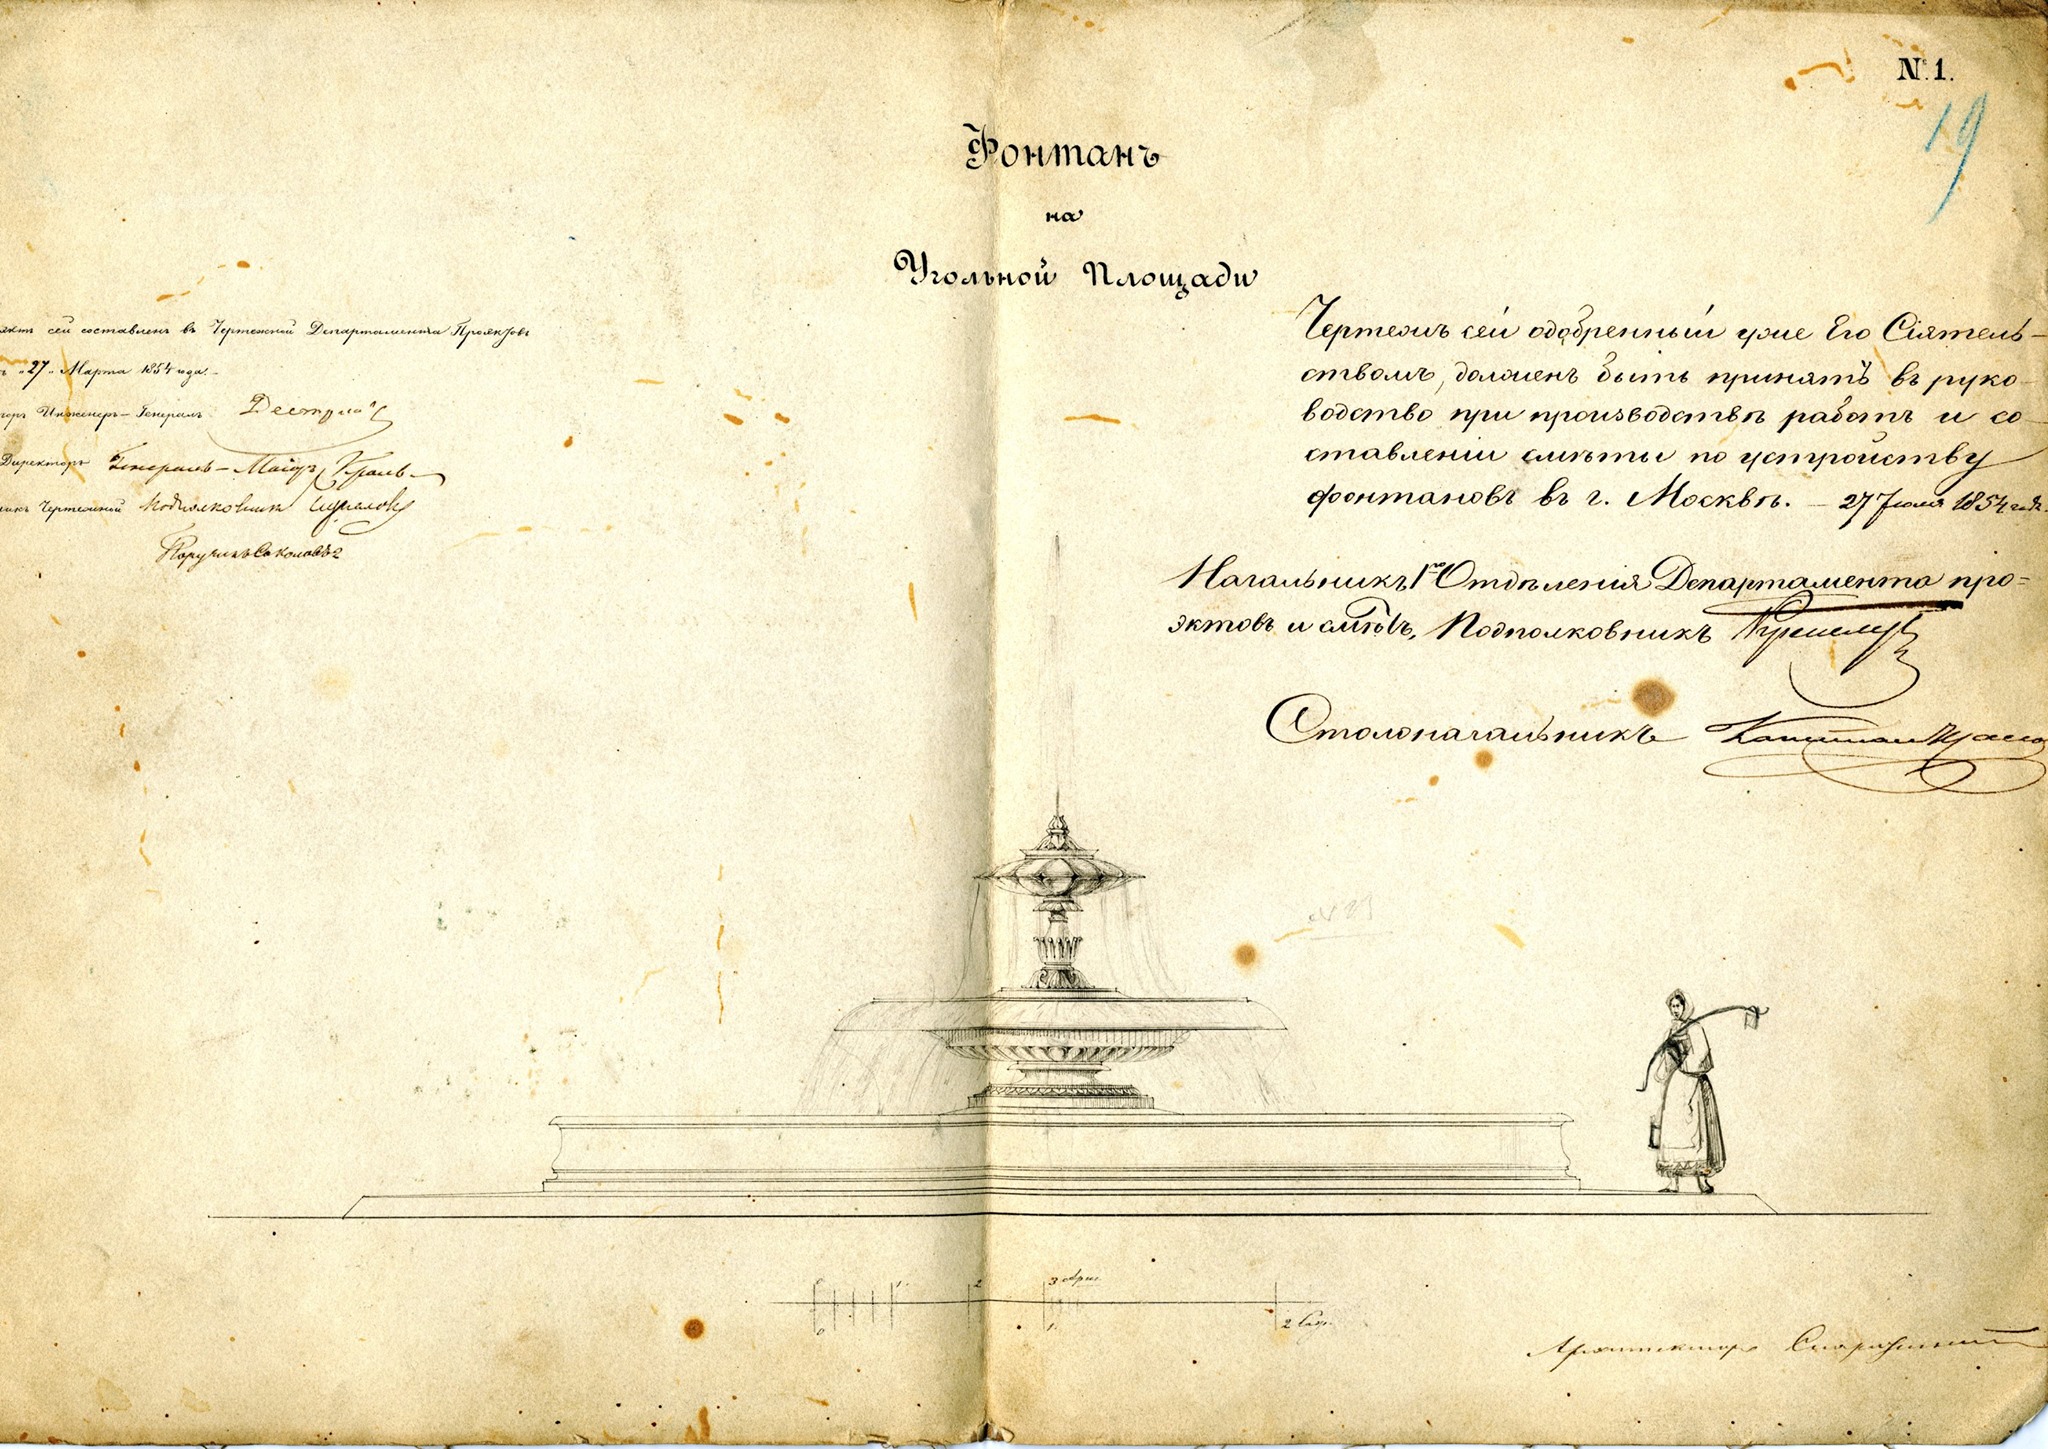 № 1.
19
Фонтанъ
на
Угольной Площади
сей составленъ въ Чертежной Департамента Проэктовъ
"27" Марта 1854 года.
Инженеръ-Генералъ Дестремъ
Директоръ Генералъ-Маіоръ Кроль
Чертежной Подполковникъ
Поручикъ Соколовъ 2
Чертежъ сей одобренный уже Его Сіятель-
ствомъ, долженъ быть принятъ въ руко-
водство при производствѣ работъ и со-
ставленіи смѣты по устройству
фонтановъ въ г. Москвѣ. — 27 Іюля 1854 года.
Начальникъ 1го Отдѣленія Департамента про-
эктовъ и смѣтъ, Подполковникъ
Столоначальникъ Капитанъ
№ 23
1 2 3 Арш.
0 1 2 Саж.
Архитекторъ